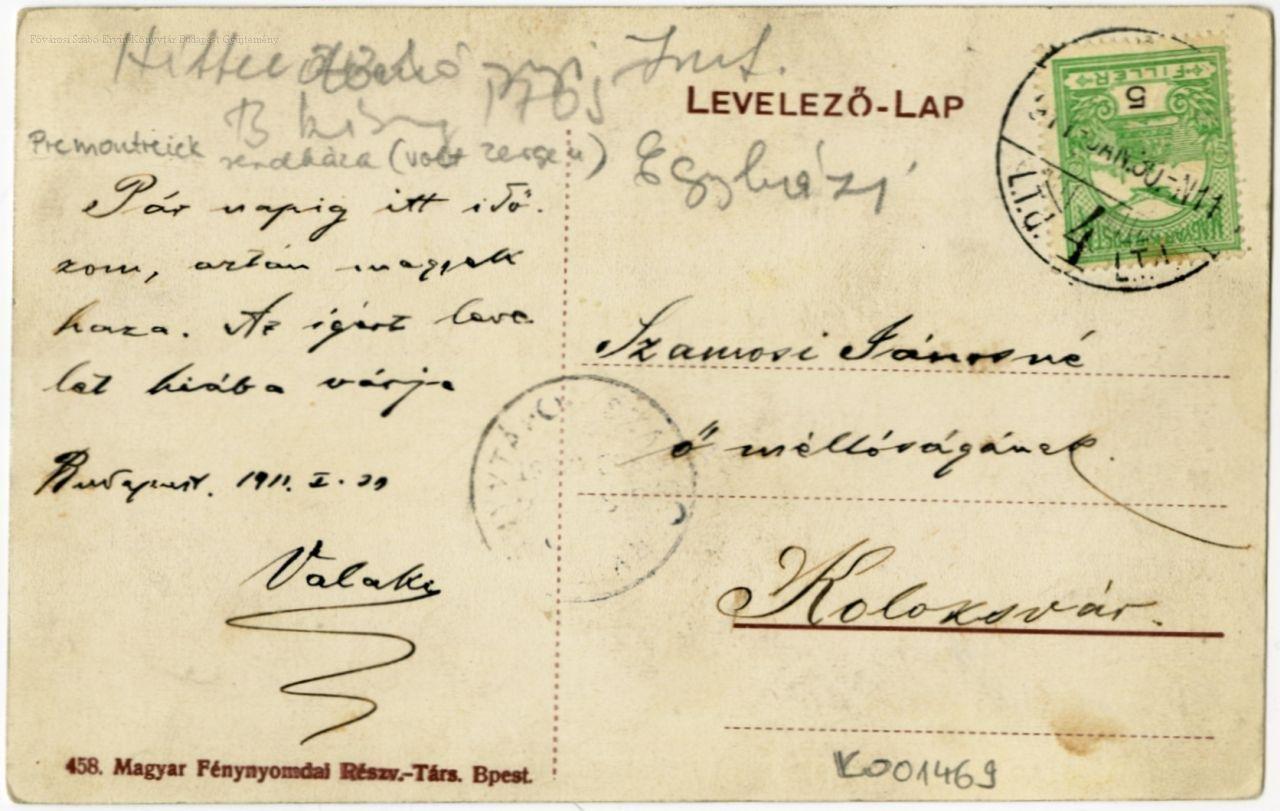 Fővárosi Szabó Ervin Könyvtár Budapest Gyűjtemény
Int.
LEVELEZŐ-LAP
1765
Premontreiek
rendháza (volt
Egyházi
FILLÉR
5
MAGYAR
JAN. 30
4
Pár napig itt idő.
zom, aztán megyek
haza. Az ígért leve
let hiába várja
Budapest. 1911. I. 29
Valaki
Szamosi Jánosné
ő méltóságának.
Kolozsvár.
458. Magyar Fénynyomdai Részv.-Társ. Bpest.
K001469